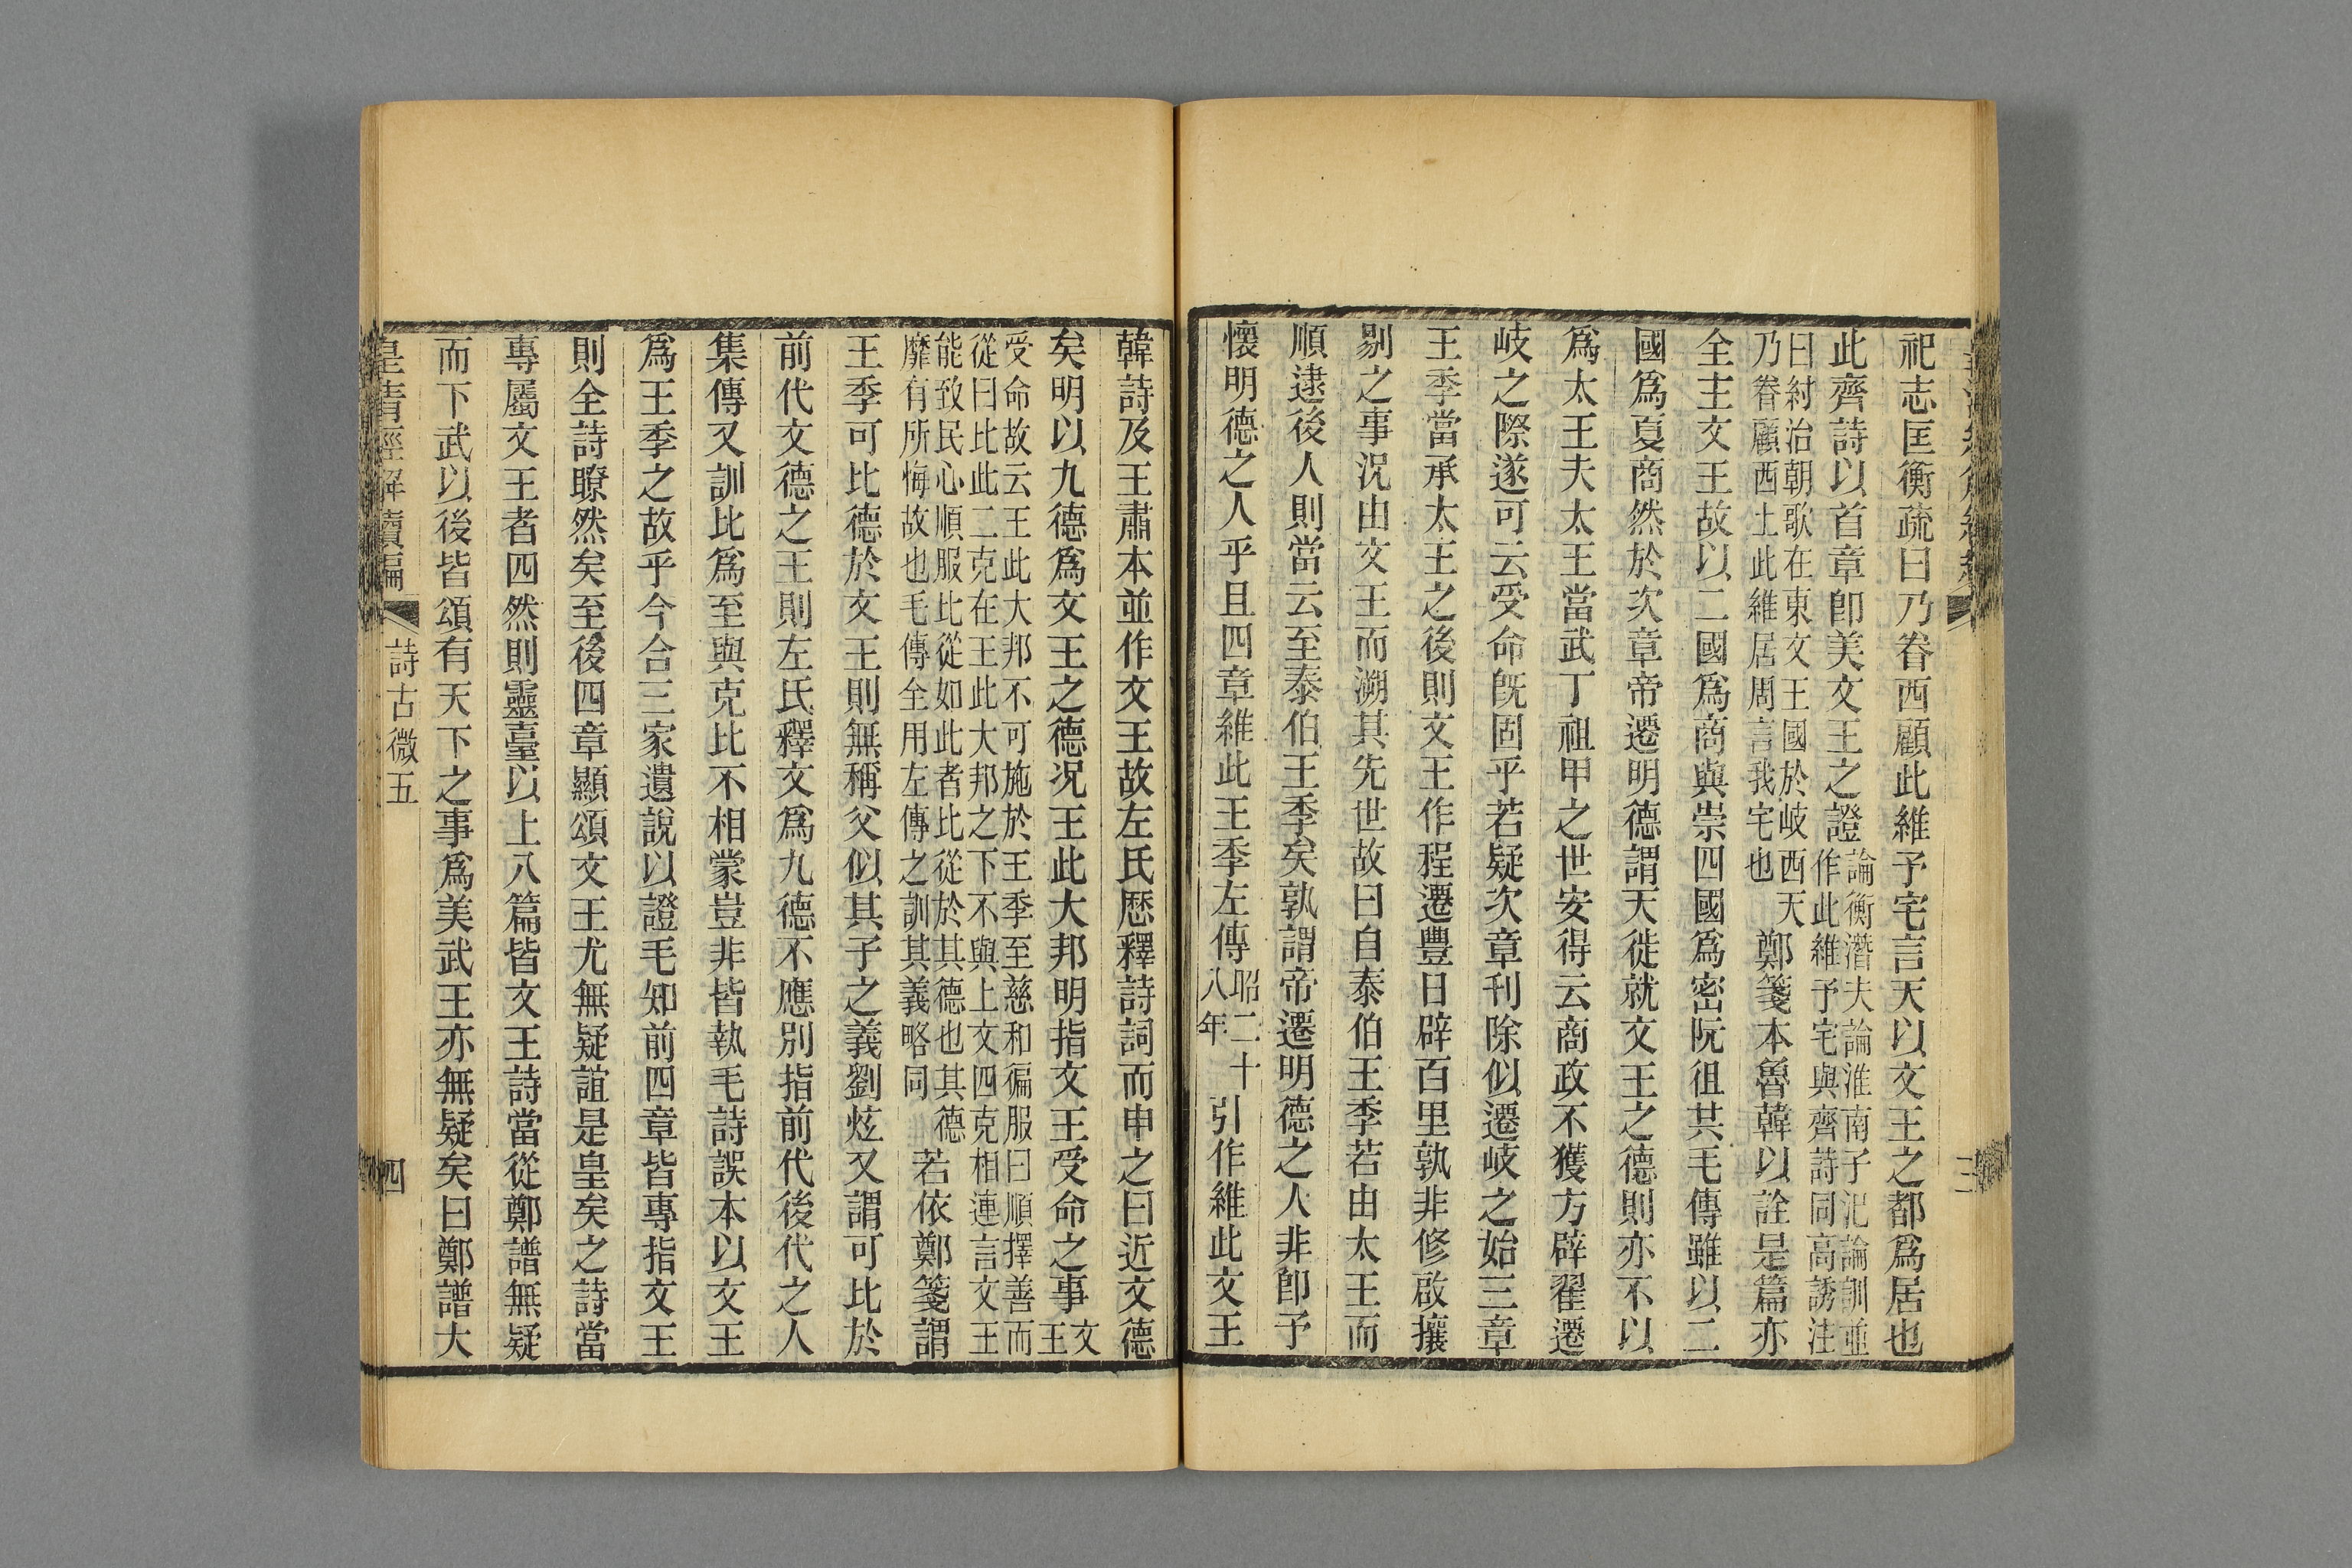 祀志匡衡疏曰乃眷西顧此維予宅言天以文王之都爲居也
此齊詩以首章卽美文王之證論衡潛夫論淮南子氾論訓並作此維予宅與齊詩同高誘注
曰紂治朝歌在東文王國於岐西天乃眷顧西土此維居周言我宅也鄭箋本魯韓以詮是篇亦
全主文王故以二國爲商與崇四國爲密阮徂共毛傳雖以二
國爲夏商然於次章帝遷明德謂天徙就文王之德則亦不以
爲太王夫太王當武丁祖甲之世安得云商政不獲方辟翟遷
岐之際遂可云受命旣固乎若疑次章刊除似遷岐之始三章
王季當承太王之後則文王作程遷豐日辟百里孰非修啟攘
剔之事況由文王而溯其先世故曰自泰伯王季若由太王而
順逮後人則當云至泰伯王季矣孰謂帝遷明德之人非卽予
懷明德之人乎且四章維此王季左傳昭二十八年引作維此文王
韓詩及王肅本並作文王故左氏歷釋詩詞而申之曰近文德
矣明以九德爲文王之德況王此大邦明指文王受命之事文王
受命故云王此大邦不可施於王季至慈和徧服曰順擇善而從曰比此二克在王此大邦之下不與上文四克相連言文王
能致民心順服比從如此者比從於其德也其德靡有所悔故也毛傳全用左傳之訓其義略同若依鄭箋謂
王季可比德於文王則無稱父似其子之義劉炫又謂可比於
前代文德之王則左氏釋文爲九德不應別指前代後代之人
集傳又訓比爲至與克比不相蒙豈非皆執毛詩誤本以文王
爲王季之故乎今合三家遺說以證毛知前四章皆專指文王
則全詩瞭然矣至後四章顯頌文王尤無疑誼是皇矣之詩當
專屬文王者四然則靈臺以上八篇皆文王詩當從鄭譜無疑
而下武以後皆頌有天下之事爲美武王亦無疑矣曰鄭譜大
皇清經解續編
詩古微五
四